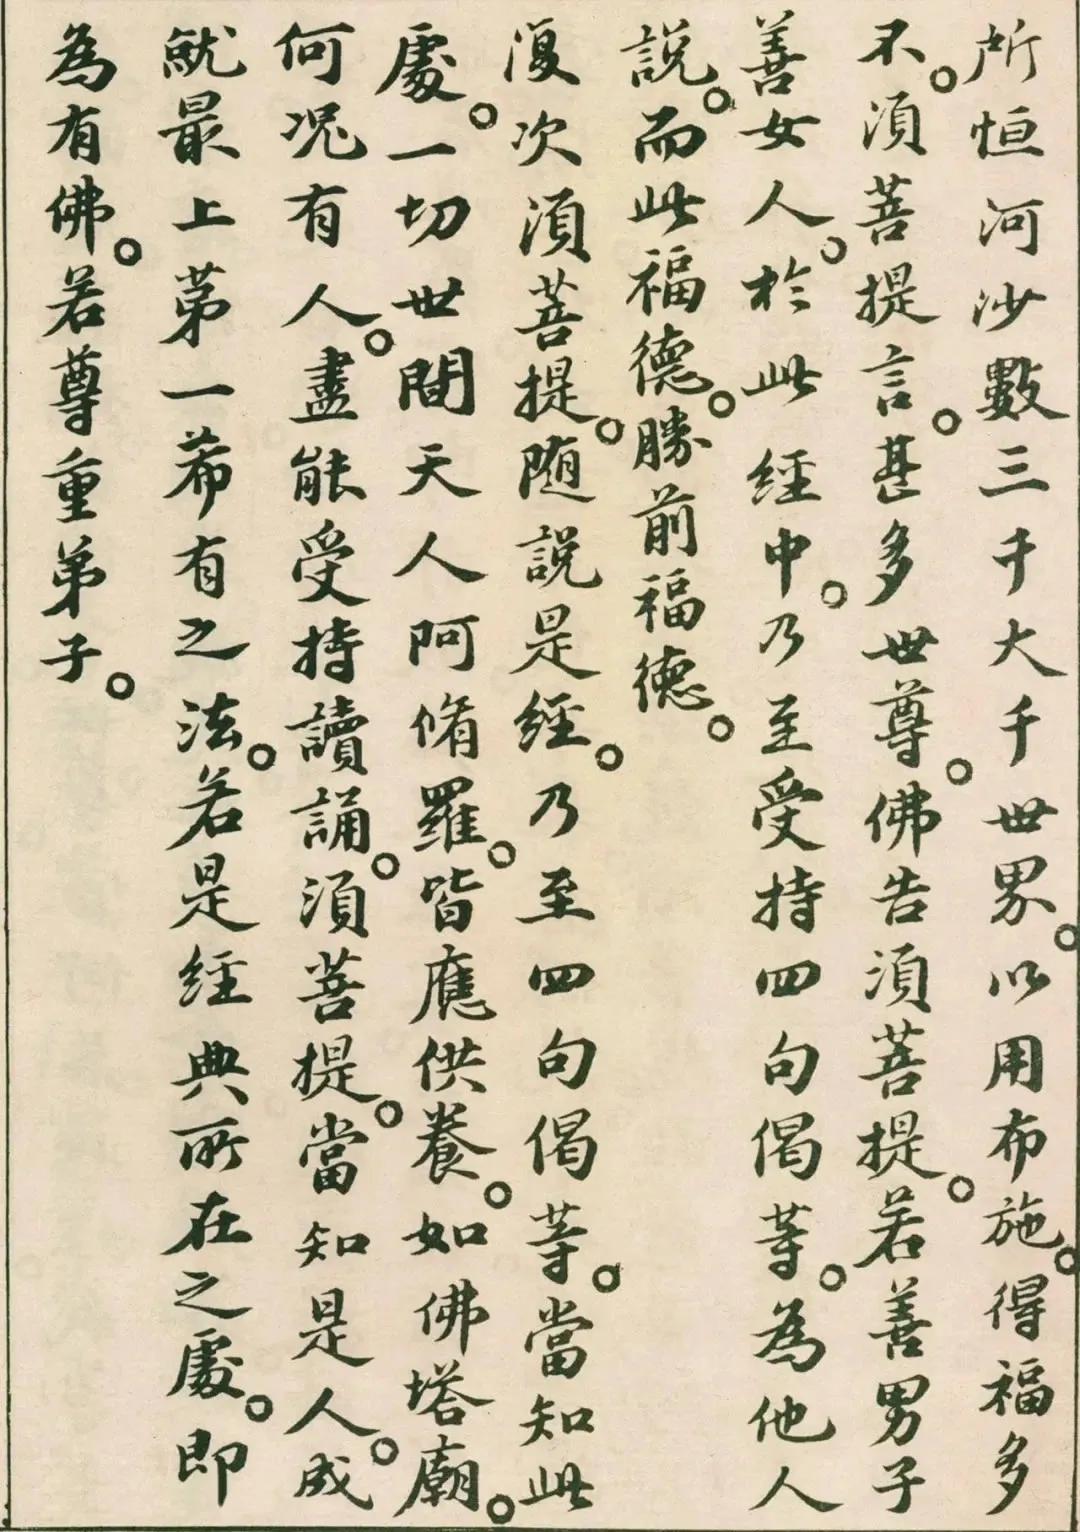 所恒河沙數三千大千世界。以用布施。得福多
不。須菩提言。甚多世尊。佛告須菩提。若善男子
善女人。於此經中。乃至受持四句偈等。為他人
說。而此福德。勝前福德。
復次須菩提。随說是經。乃至四句偈等。當知此
處。一切世間天人阿脩羅。皆應供養。如佛塔廟。
何況有人。盡能受持讀誦。須菩提。當知是人。成
就最上第一希有之法。若是經典所在之處。即
為有佛。若尊重弟子。